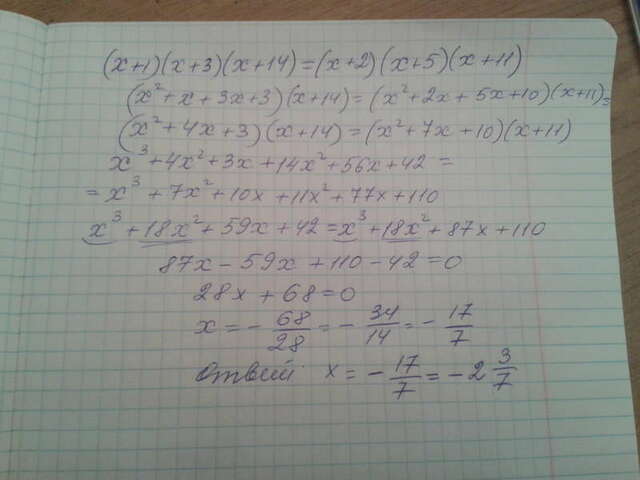 (x+1)(x+3)(x+14)=(x+2)(x+5)(x+11)
(x²+x+3x+3)(x+14)=(x²+2x+5x+10)(x+11)=
(x²+4x+3)(x+14)=(x²+7x+10)(x+11)
x³+4x²+3x+14x²+56x+42=
=x³+7x²+10x+11x²+77x+110
x³+18x²+59x+42=x³+18x²+87x+110
87x-59x+110-42=0
28x+68=0
x=-68/28=-34/14=-17/7
ответ x=-17/7=-2 3/7